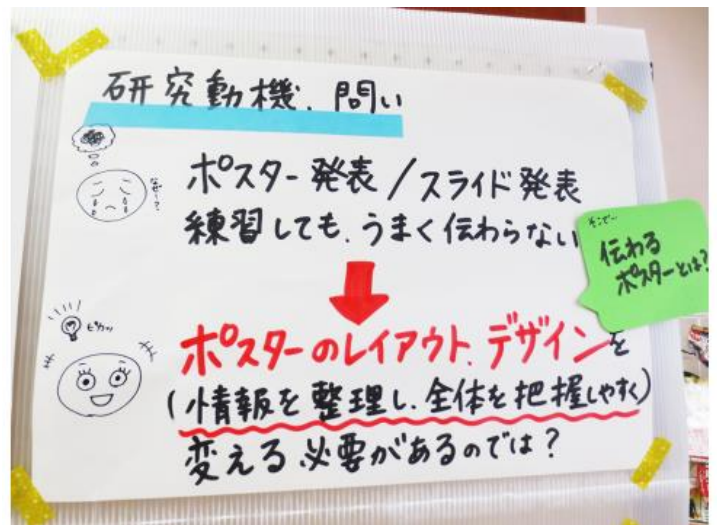 研究動機、問い
なぜー?
ポスター発表/スライド発表
練習しても、うまく伝わらない
そこで…
伝わる
ポスターとは?
ピカッ
ポスターのレイアウト、デザインを
(情報を整理し、全体を把握しやすく)
変える必要があるのでは?